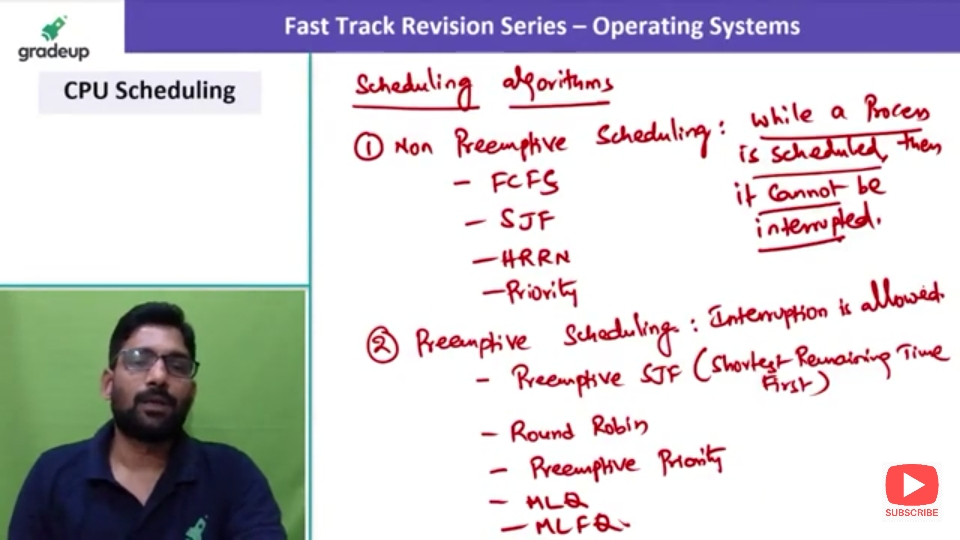 Fast Track Revision Series – Operating Systems
gradeup
CPU Scheduling
Scheduling algorithms
① Non Preemptive Scheduling : while a Process
is scheduled, then
it cannot be
interrupted.
– FCFS
– SJF
– HRRN
– Priority
② Preemptive Scheduling : Interruption is allowed.
– Preemptive SJF (Shortest Remaining Time
First)
– Round Robin
– Preemptive Priority
– MLQ
– MLFQ
SUBSCRIBE